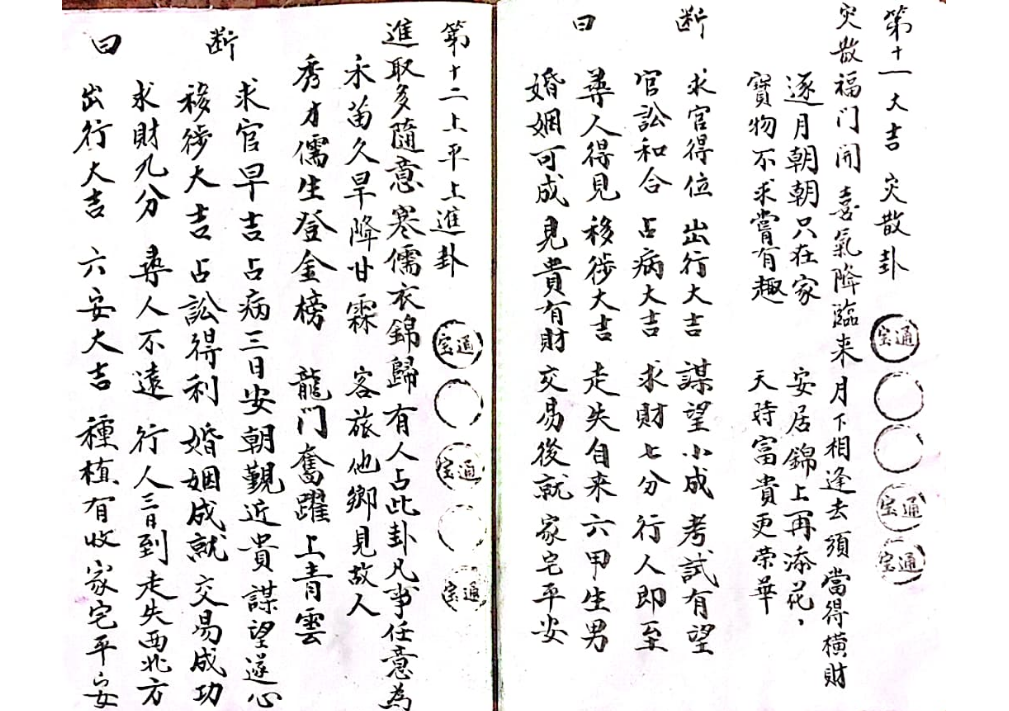 第十一大吉 災散卦
通宝
通宝
通宝
災散福门開 喜氣降臨来 月下相逢去 頭當得横財
逐月朝朝只在家 安居錦上再添花,
寶物不求嘗有趣 天時富貴更荣華
断曰
求官得位 出行大吉 謀望小成 考試有望
官訟和合 占病大吉 求財七分 行人即至
尋人得見 移徙大吉 走失自来 六甲生男
婚姻可成 見貴有財 交易後就 家宅平安
第十二上平上進卦
通宝
通宝
通宝
進取多隨意 寒儒衣錦歸 有人占此卦 凡事任意為
禾苗久旱降甘霖 客旅他鄉見故人
秀才儒生登金榜 龍门奮躍上青雲
断曰
求官早吉 占病三日安 朝觐近貴 謀望遂心
移徙大吉 占訟得利 婚姻成就 交易成功
求財九分 尋人不遠 行人三日到 走失西北方
出行大吉 六安大吉 種植有收 家宅平安